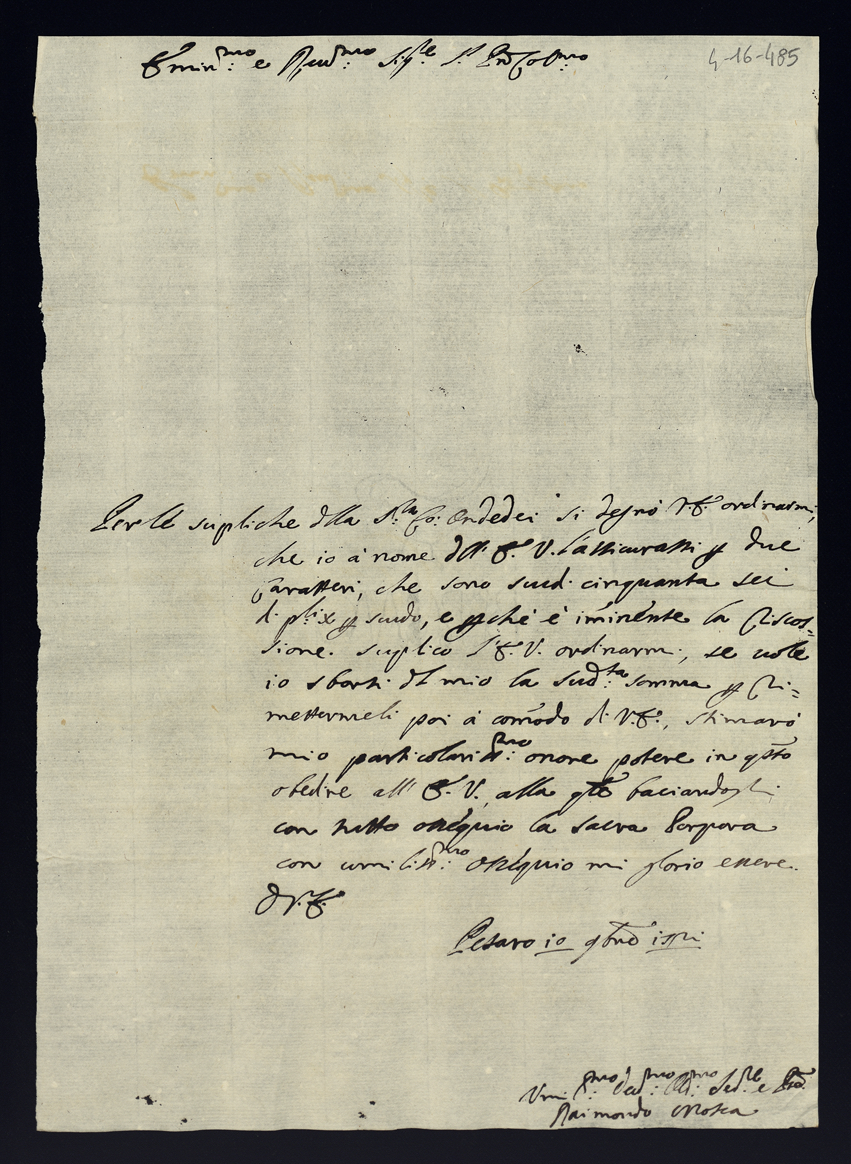 Emin.mo e Rev.mo Sig.re P.rone Col.mo
4-16-485
Per le supliche dlla S.ra Co: Ondedei si degnò V.E. ordinarmi,
che io à nome dell' E. V. l'assicurassi p due
Caratteri, che sono scud. cinquanta sei
di p scudo, e pche è iminente la Riscos=
sione. suplico l'E.V. ordinarmi, se vole
io sborsi del mio la sud.ta somma p Ri=
mettermeli poi à comodo di V.E., stimarò
mio particolariss.mo onore potere in qsto
obedire all' E. V. alla qle baciandogli
con tutto ossequio la sacra Porpora
con umiliss.mo ossequio mi glorio essere.
D V.E.
Pesaro 10 9bre
Um.
Raimondo Mosca